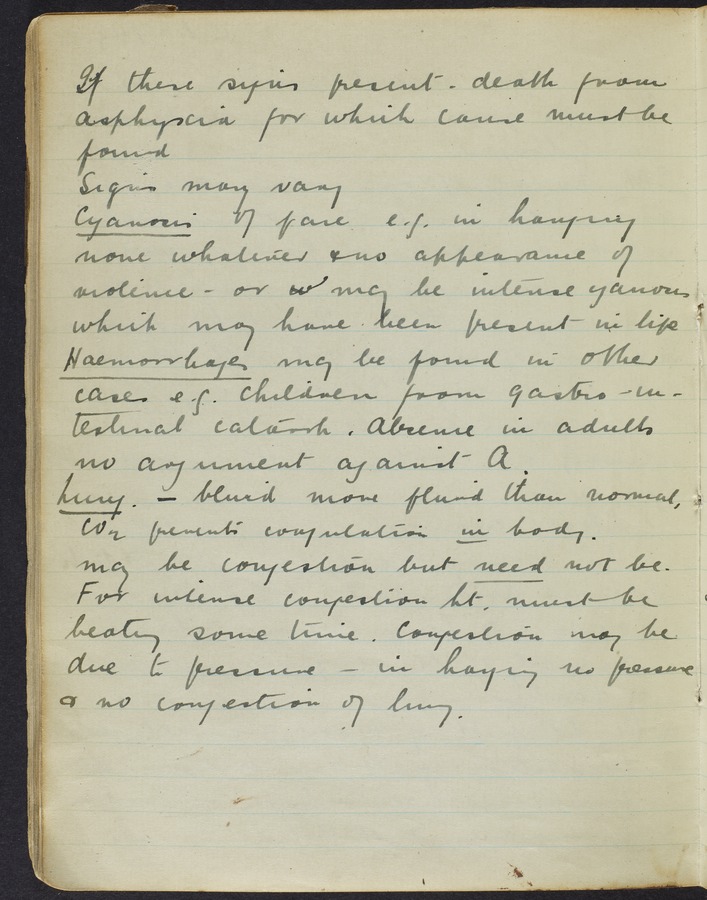 If these signs present - death from
asphyxia for which cause must be
found
Signs may vary
Cyanosis of face e.g. in hanging
none whatever & no appearance of
violence - or may be intense cyanosis
which may have been present in life
Haemorrhages may be found in other
cases e.g. children from gastro-in-
testinal catarrh. Absence in adults
no argument against A.
Lung. - blurid more fluid than normal,
CO2 prevents coagulation in body.
may be congestion but need not be.
For intense congestion ht. must be
beating some time. Congestion may be
due to pressure - in hanging no pressure
& no congestion of lung.